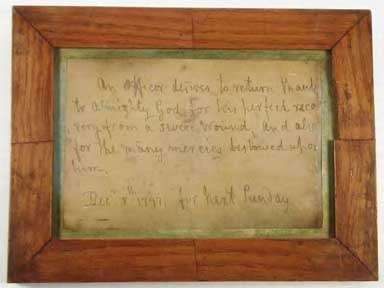 An Officer desires to return thanks
to Almighty God for his perfect reco
very from a severe wound, and also
for the many mercies bestowed upon
him.
Decr 8th 1797. for next Sunday